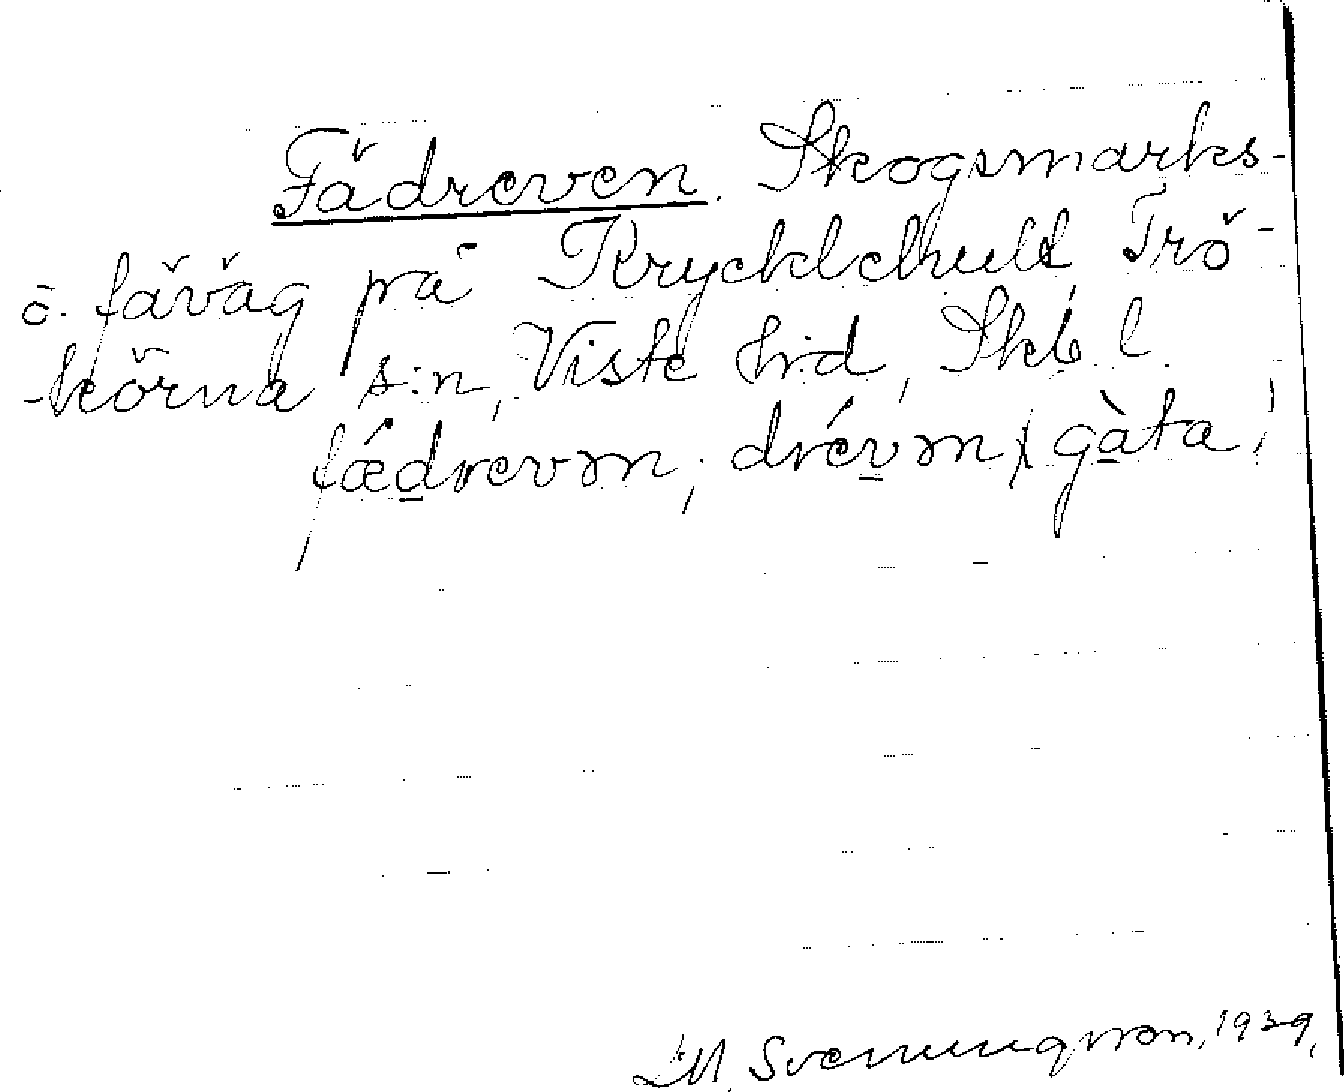 Fädreven. Skogsmarks-
o. fäväg på Krycklehult, Trö-
-körna s:n, Viste hd, Skb. l.
fǽdrevən; drévən, gàta!
M. Svenungsson, 1939.